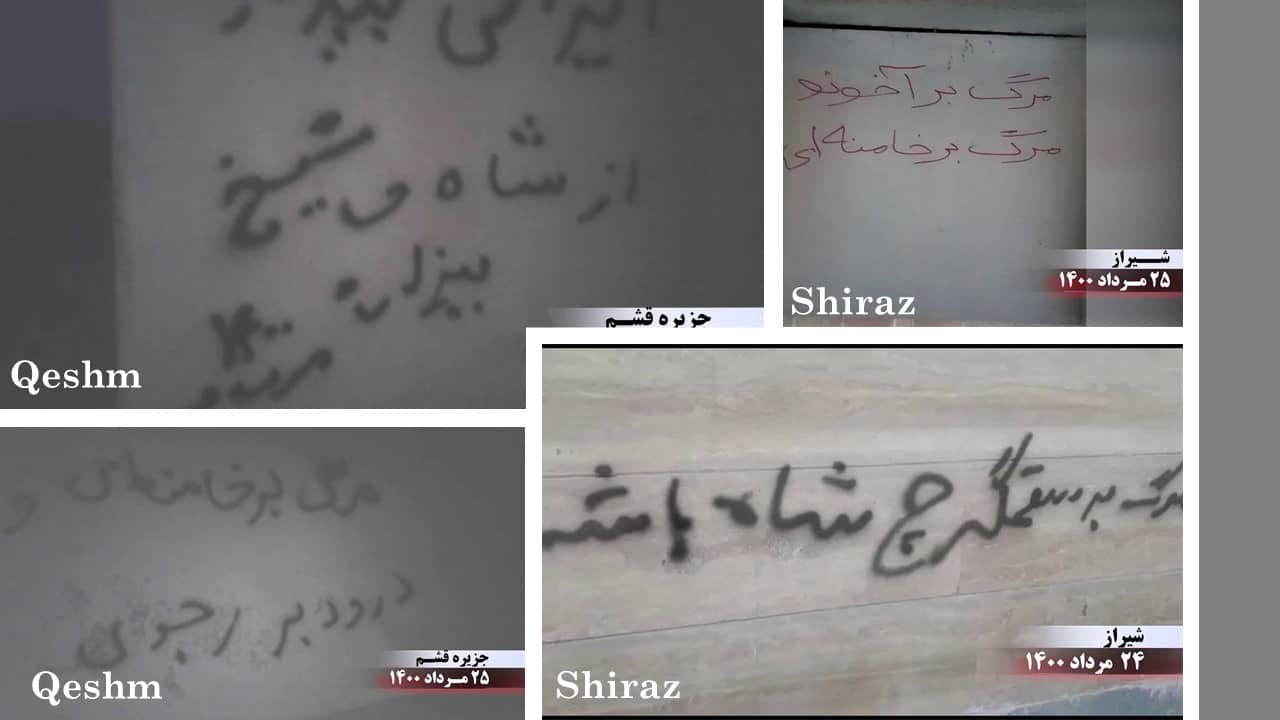 ایرانی بیدار
از شاه و شیخ
بیزاره
۱۴۰۰
جزیره قشم
Qeshm
مرگ بر آخوندو
مرگ بر خامنه ای
شیراز
۲۵ مرداد ۱۴۰۰
Shiraz
مرگ بر خامنه‌ای و
درود بر رجوی
جزیره قشم
۲۵ مرداد ۱۴۰۰
Qeshm
مرگ بر ستمگر چ شاه
شیراز
۲۴ مرداد ۱۴۰۰
Shiraz